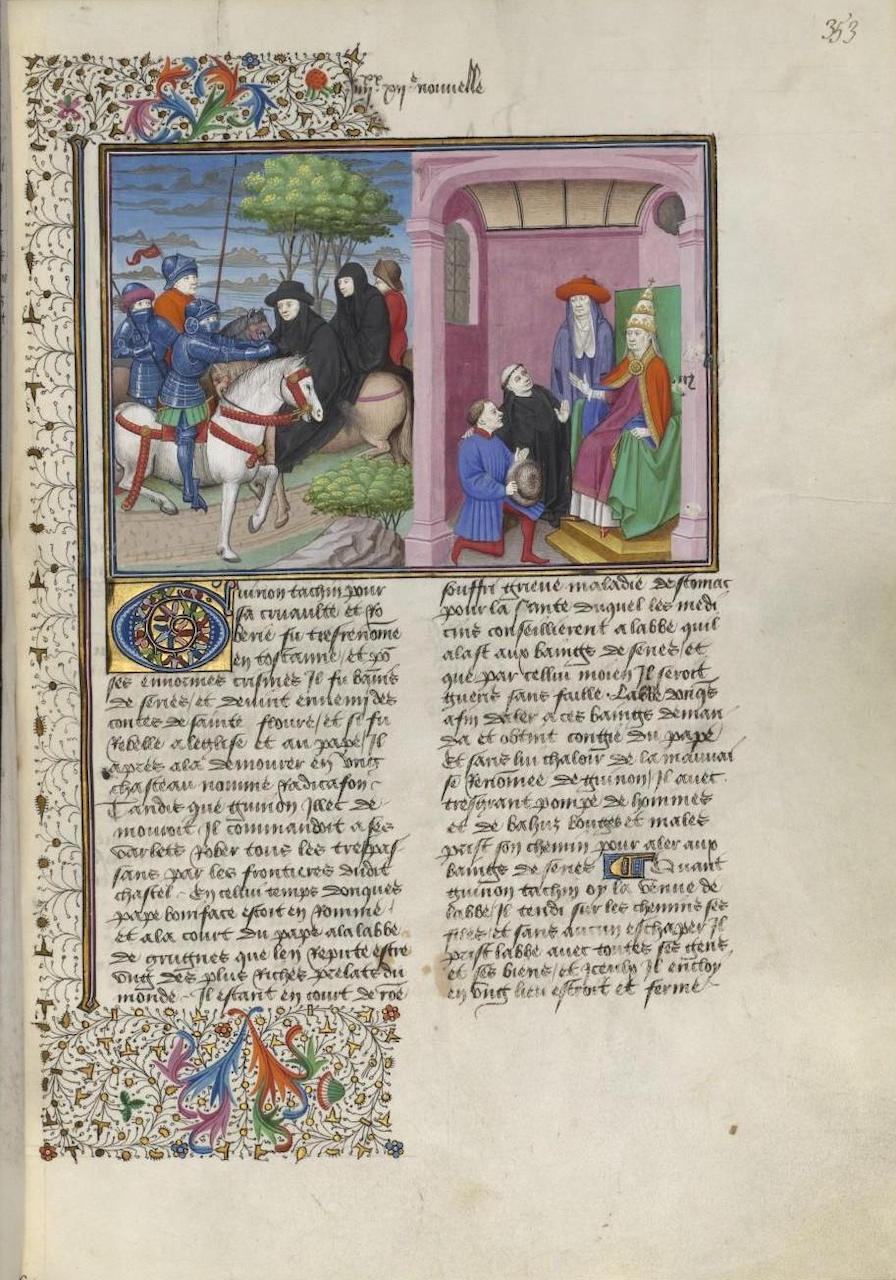 353
iiii^xx xii^e nouuelle
Guinon tachin pour
sa cruaulte et ro
berie fu tresrenome
en toscanne / et po^r
ses ennormes crismes Il fu banis
de senes / et deuint ennemi des
contes de sainte floure / et se fu
Rebelle a leglise et au pape / Il
apres ala demourer en vng
chasteau nomme Radicafon
Tandis que guinon Illec de
mouroit Il cōmandoit a ses
varlets Rober tous les trespas
sans par les frontieres dudit
chastel En cellui temps donques
pape boniface estoit en Romme
et a la court du pape ala labbe
de grugnes que len Repute estre
vng des plus Riches prelats du
monde Il estant en court de rōe
souffri grieue maladie destomac
pour la sante duquel les medi
cins conseillierent a labbe quil
alast aux baings de senes / et
que par cellui moien Il seroit
gueris sans faille Labbe donqs
afin daler a ces baings deman
da et obtint congie du pape
Et sans lui chaloir de la mauuai
se Renomee de guinon / Il auec
tresgrant pompe de hommes
et de bahuz bouges et males
prist son chemin pour aler aux
baings de senes Quant
guinon tachin oy la venue de
labbe Il tendi sur les chemins ses
files et sans aucun eschaper Il
prist labbe auec toutes ses gens
et ses biens / et Iceulx Il encloy
en vng lieu estroit et ferme